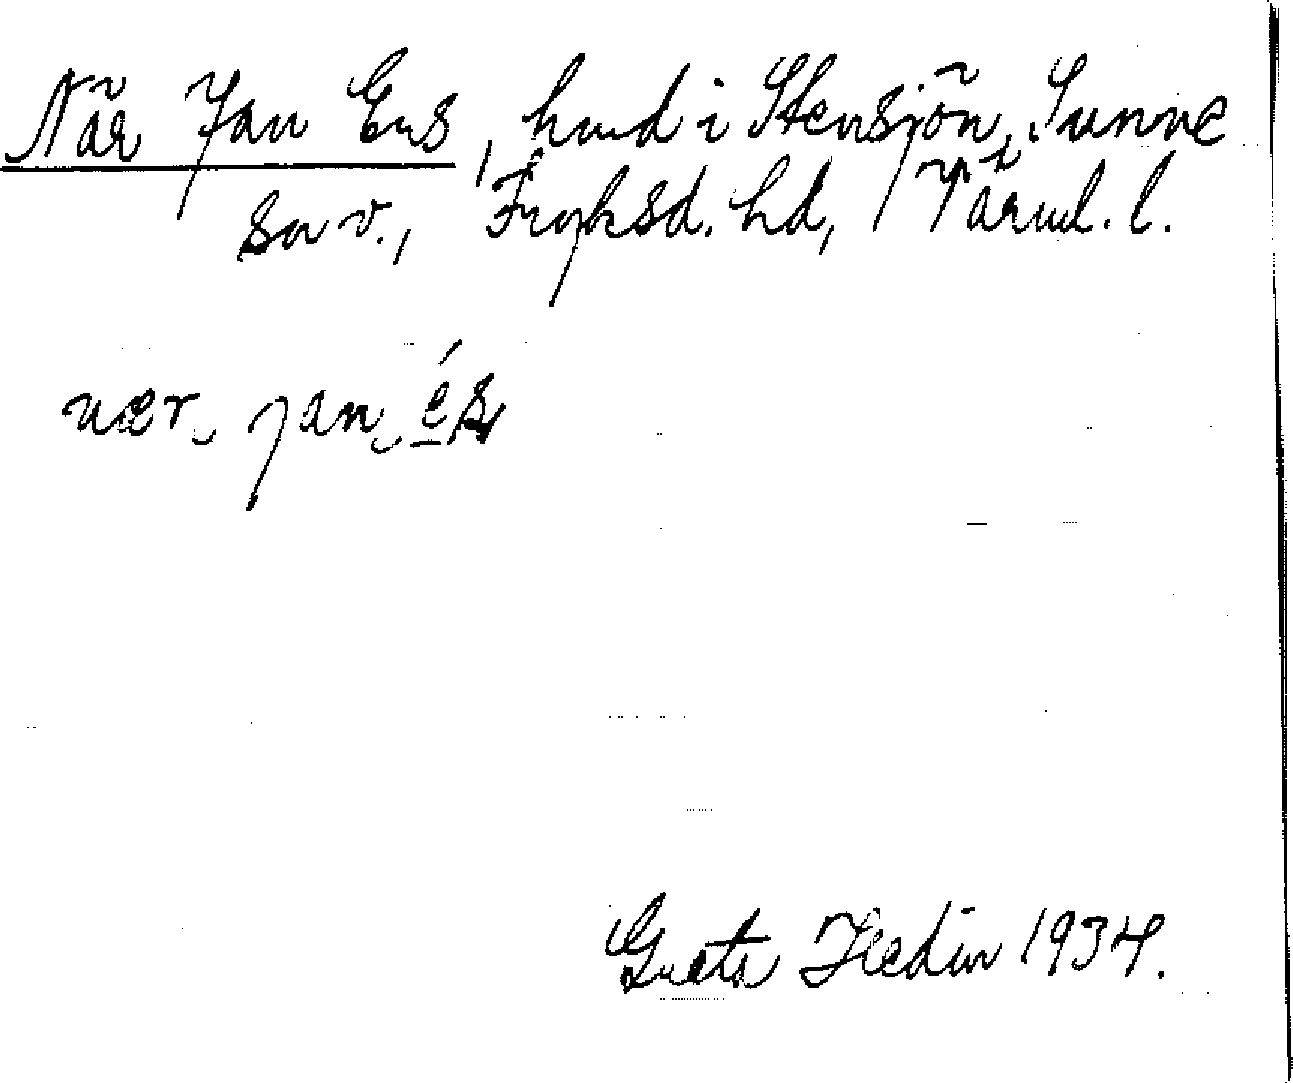 När Jan Ers, hmd i Stensjön, Sunne
sn v., Fryksd. hd, Värml. l.
Greta Hedin 1934.